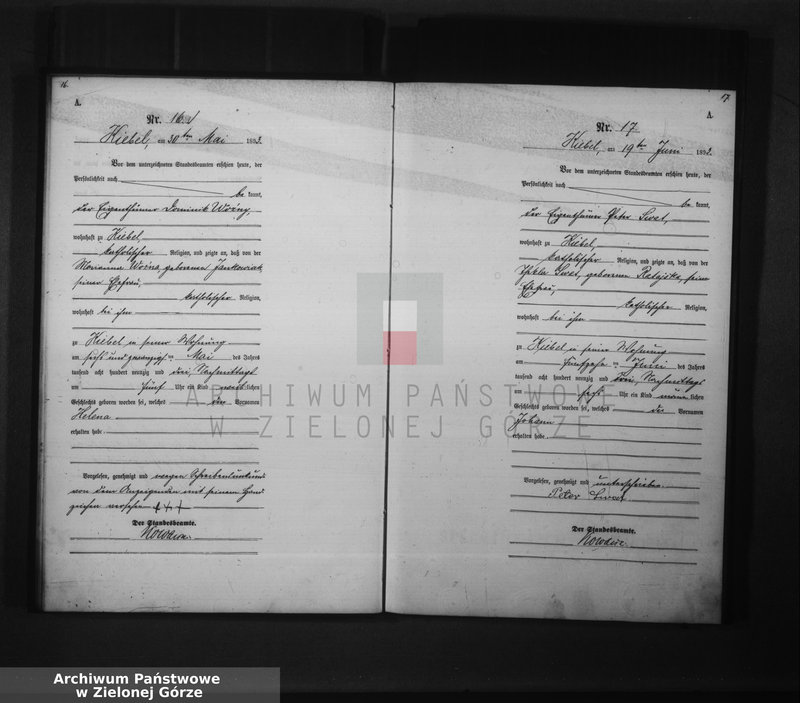 16.
A.
Nr. 16.
Kiebel, am 30ten Mai 1893.
Vor dem unterzeichneten Standesbeamten erschien heute, der
Persönlichkeit nach
be kannt,
der Eigenthümer Dominik Woźny,
wohnhaft zu Kiebel,
katholischer Religion, und zeigte an, daß von der
Marianna geborenen Jankowiak
seiner Ehefrau,
katholischer Religion,
wohnhaft bei ihm
zu Kiebel in seiner Wohnung
am sechs und zwanzigsten Mai des Jahres
tausend acht hundert neunzig und drei, Nachmittags
um fünf Uhr ein Kind weiblichen
Geschlechts geboren worden sei, welches den Vornamen
Helena
erhalten habe.
Vorgelesen, genehmigt und wegen Schreibensunkunde
von dem Anzeigenden mit seinem Hand
zeichen versehen +++
Der Standesbeamte.
17.
A.
Nr. 17
Kiebel, am 19ten Juni 1893.
Vor dem unterzeichneten Standesbeamten erschien heute, der
Persönlichkeit nach
be kannt,
der Eigenthümer Peter
wohnhaft zu Kiebel,
katholischer Religion, und zeigte an, daß von der
geborenen seiner
Ehefrau,
katholischer Religion,
wohnhaft bei ihm
zu Kiebel in seiner Wohnung
am fünfzehnten Juni des Jahres
tausend acht hundert neunzig und drei, Nachmittags
um sechs Uhr ein Kind männlichen
Geschlechts geboren worden sei, welches den Vornamen
Johann
erhalten habe.
Vorgelesen, genehmigt und unterschrieben
Peter
Der Standesbeamte.
ARCHIWUM PAŃSTWOWE
W ZIELONEJ GÓRZE
Archiwum Państwowe
w Zielonej Górze